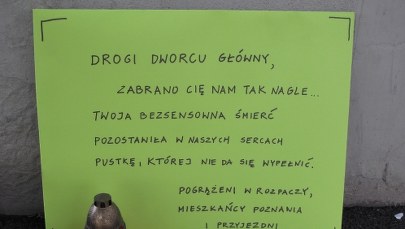 DROGI DWORCU GŁÓWNY,
ZABRANO CIĘ NAM TAK NAGLE...
TWOJA BEZSENSOWNA ŚMIERĆ
POZOSTAWIŁA W NASZYCH SERCACH
PUSTKĘ, KTÓREJ NIE DA SIĘ WYPEŁNIĆ.
POGRĄŻENI W ROZPACZY,
MIESZKAŃCY POZNANIA
I PRZYJEZDNI